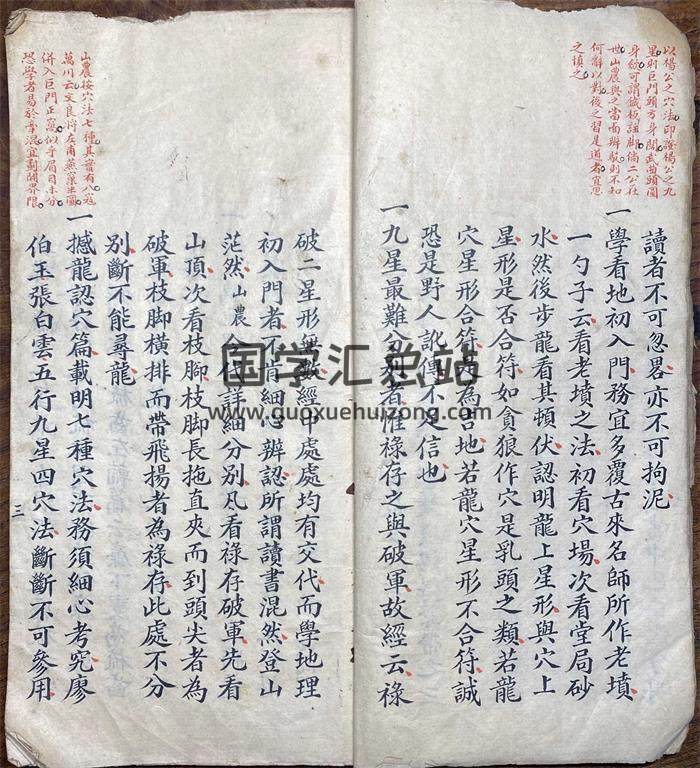 以楊公之穴法印證楊公之九
星則巨門頭方身闊武曲頭圓
身
世山農與之當面辦駁則不知
何辭以對後之習是道者宜思
之填之
讀者不可忽畧亦不可拘泥
一學看地初入門務宜多覆古來名師所作老墳
一勺子云看老墳之法初看穴場次看堂局砂
水然後步龍看其頓伏認明龍上星形與穴上
星形是否合符如貪狼作穴是乳頭之類若龍
穴星形合符是為吉地若龍穴星形不合符誠
恐是野人訛傳不足信也
一九星最難分別者惟祿存之與破軍故經云祿
山農按穴法七種其實有八穴
萬川云文良將左甫燕窠坐圖
併入巨門正窩似乎眉目未分
恐學者易於牽混宜劃開界限
破二星形無數經中處處均有交代而學地理
初入門者不肯細心辨認所謂讀書混然登山
茫然山農今代詳細分別凡看祿存破軍先看
山頂次看枝脚枝脚長拖直夾而到頭尖者為
破軍枝脚橫排而帶飛揚者為祿存此處不分
別斷不能尋龍
一撼龍認穴篇載明七種穴法務須細心考究廖
伯玉張白雲五行九星四穴法斷斷不可參用
三
国学汇总站
www.guoxuehuizong.com